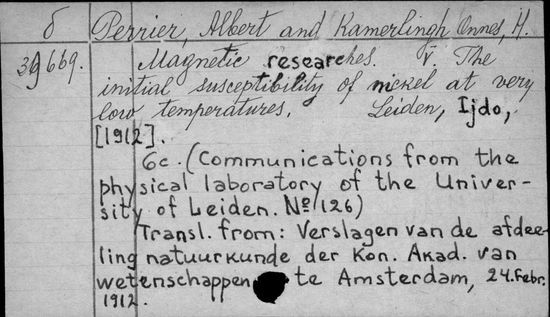 б Perrier, Albert and Kamerlingh Onnes, H.
39669. Magnetic researches. V. The
initial susceptibility of nickel at very
low temperatures. Leiden, Ijdo,
[1912].
6c. (Communications from the
physical laboratory of the Univer-
sity of Leiden. № 126)
Transl. from: Verslagen van de afdee-
ling natuurkunde der Kon. Akad. van
wetenschappen te Amsterdam, 24. Febr.
1912.